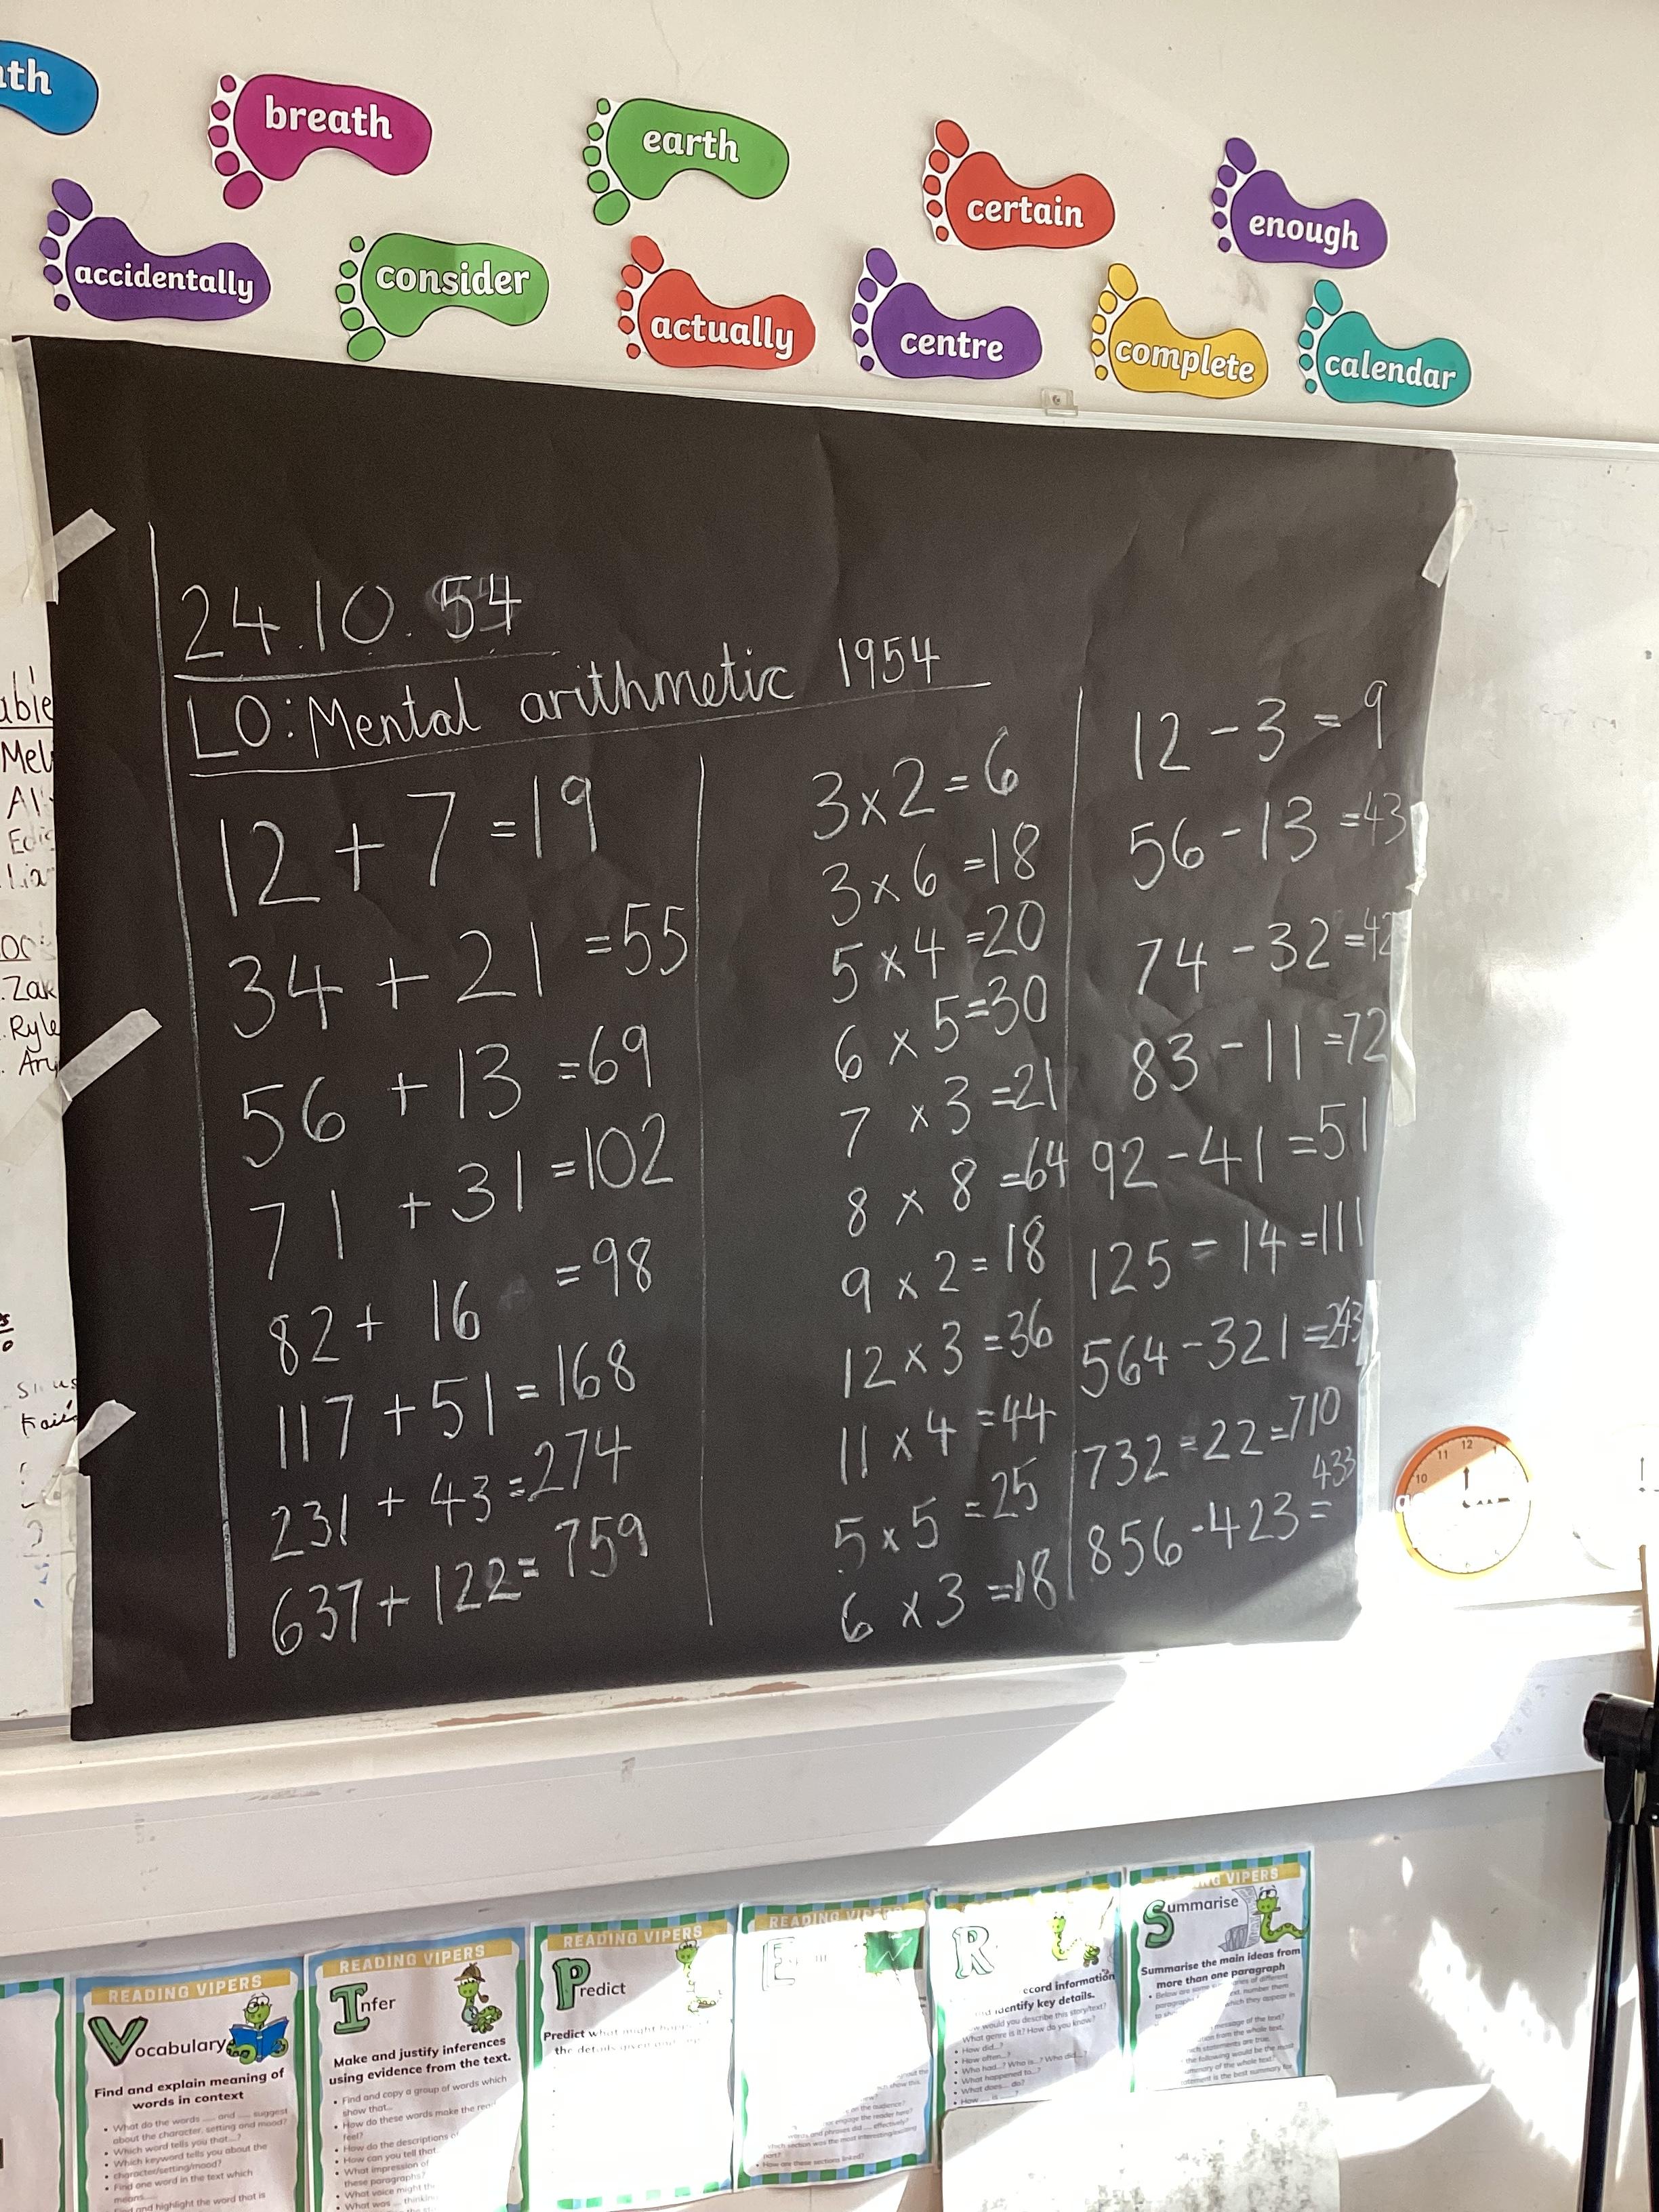 breath
earth
certain
enough
accidentally
consider
actually
centre
complete
calendar
24.10.54
LO: Mental arithmetic 1954
12 + 7 = 19
34 + 21 = 55
56 + 13 = 69
71 + 31 = 102
82 + 16 = 98
117 + 51 = 168
231 + 43 = 274
637 + 122 = 759
3 x 2 = 6
3 x 6 = 18
5 x 4 = 20
6 x 5 = 30
7 x 3 = 21
8 x 8 = 64
9 x 2 = 18
12 x 3 = 36
11 x 4 = 44
5 x 5 = 25
6 x 3 = 18
12 - 3 = 9
56 - 13 = 43
74 - 32 = 42
83 - 11 = 72
92 - 41 = 51
125 - 14 = 111
564 - 321 = 243
732 - 22 = 710
856 - 423 = 433
Zak
10 11 12 1
READING VIPERS
Vocabulary
Find and explain meaning of
words in context
What do the words ..... and ..... suggest
about the character, setting and mood?
Which word tells you that....?
Which keyword tells you about the
character/setting/mood?
Find one word in the text which
means.....
Find and highlight the word that is
READING VIPERS
Infer
Make and justify inferences
using evidence from the text.
Find and copy a group of words which
show that...
How do these words make the
feel?
How do the descriptions
How can you tell that
What impression of
these paragraphs?
What voice might
What was
READING VIPERS
Predict
Predict what might
the details given
READING VIPERS
E
R
record information
identify key details.
would you describe this story/text?
What genre is it? How do you know?
How did...?
How often...?
Who had...? Who is...? Who did...?
What happened to...?
What does... do?
How
VIPERS
Summarise
Summarise the main ideas from
more than one paragraph